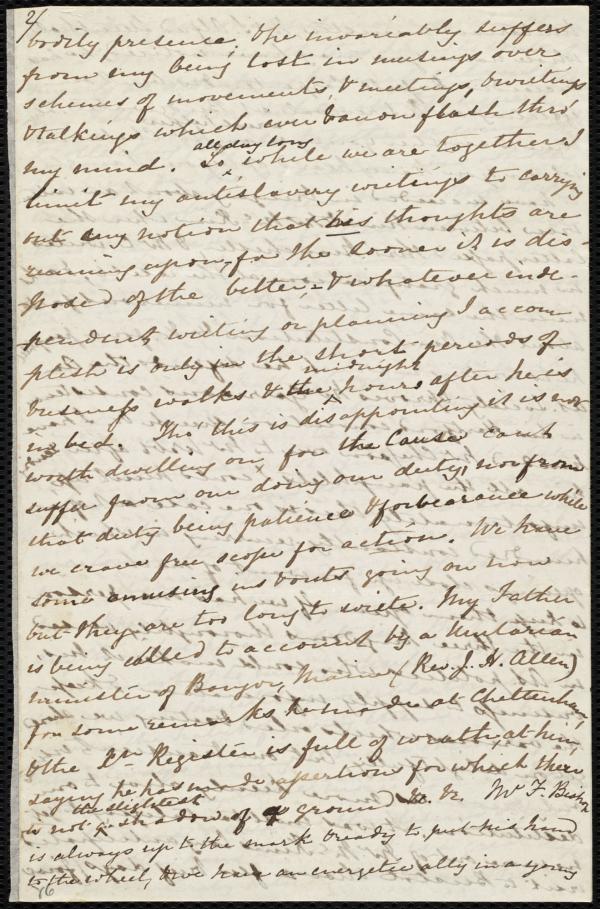 2/
bodily presence, & he invariably suffers
from my being lost in musings over
schemes of movements, & meetings, & writings
& talkings which ever & anon flash thro'
my mind. So, all day long while we are together I
limit my antislavery writings to carrying
out any notion that his thoughts are
running upon, for the sooner it is dis-
posed of the better, & whatever inde-
pendent writing or planning I accom
plish is only in the short periods of
business walks & the midnight hours after he is
in bed. Tho' this is disappointing it is not
worth dwelling on, for the Cause can't
suffer from our doing our duty, nor from
that duty being patience & forbearance while
we crave free scope for action. We have
some amusing ins & outs going on now
but they are too long to write. My Father
is being called to account by a Unitarian
minister of Bangor, Maine (Rev. J. H. Allen)
for some remarks he made at Cheltenham,
& the Xn Register is full of wrath at him,
saying he has made assertion for which there
is not the slightest shadow of ground &c. &c. Mr F. Bishop
is always up to the mark & ready to put his hand
to the wheel, & we have an energetic ally in a young